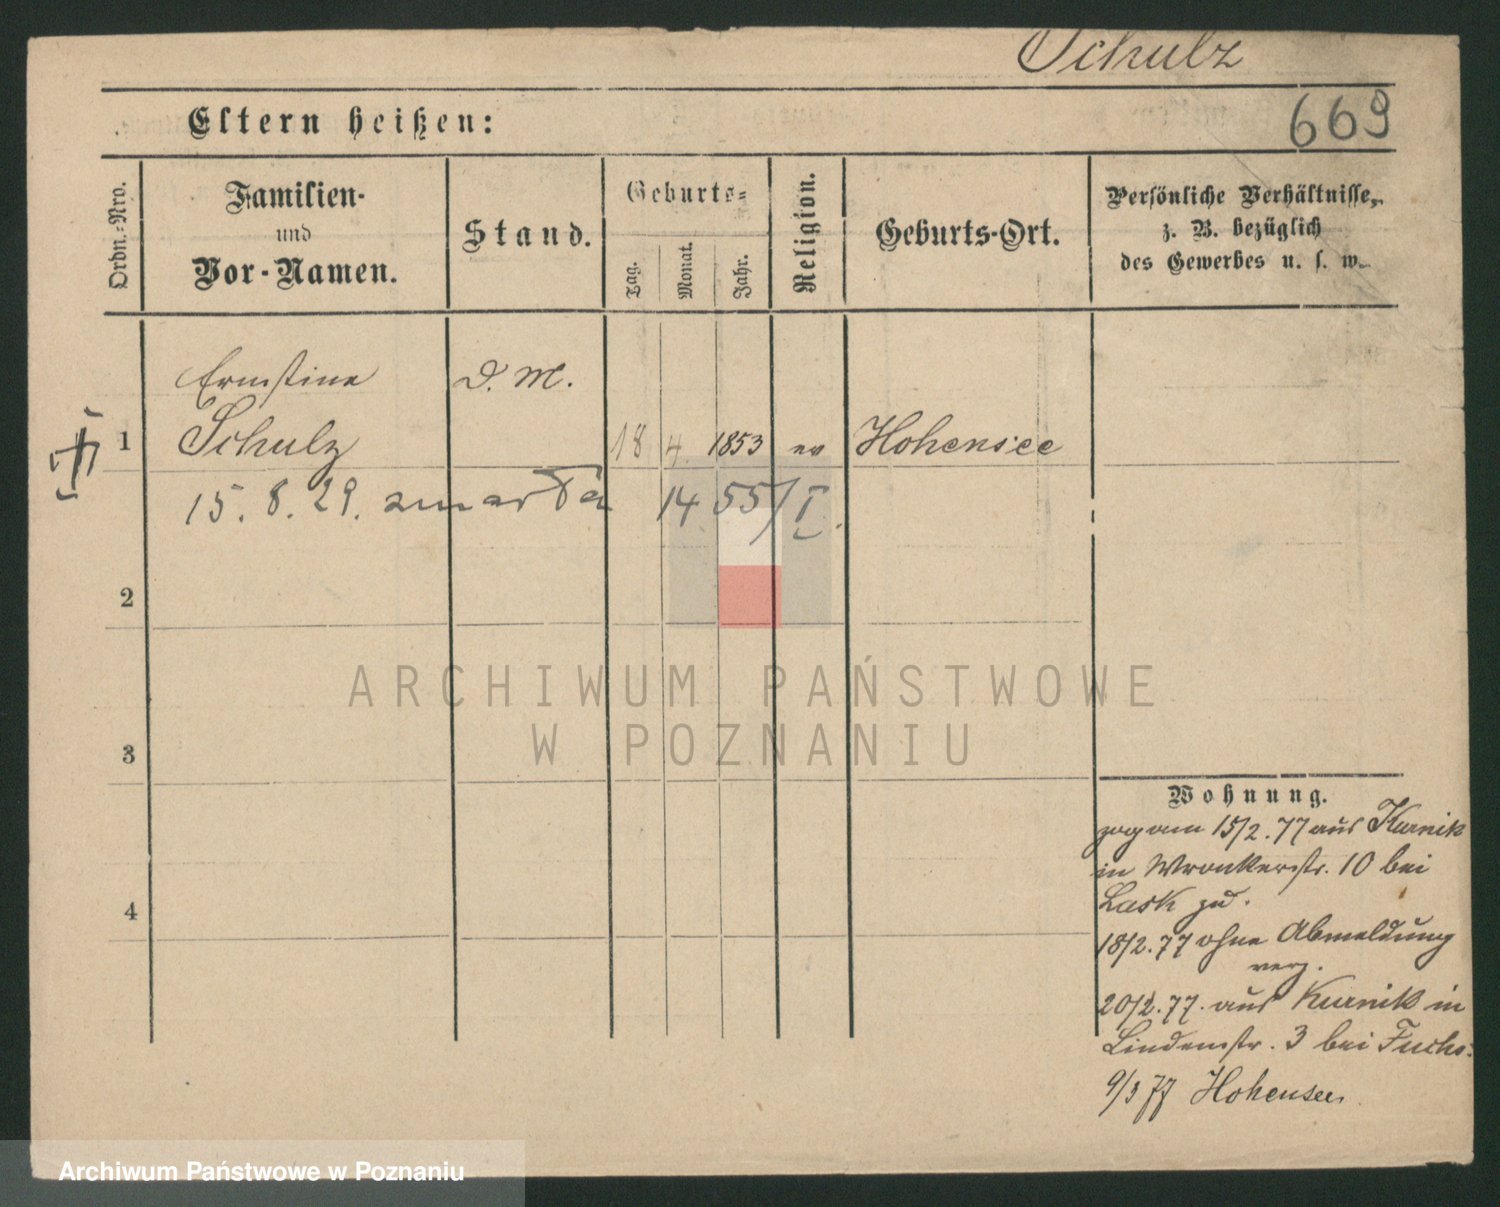 Schulz
669
Eltern heißen:
Ordn.=Nro.
Familien-
und
Vor-Namen.
Stand.
Geburts=
Tag.
Monat.
Jahr.
Religion.
Geburts-Ort.
Persönliche Verhältnisse,
z. B. bezüglich
des Gewerbes u. s. w.
Ernstine D. M.
1 Schulz 18 4. 1853 ev Hohensee
15. 8. 29. zmarła 1455/I.
2
3
4
Wohnung.
zog am 15/2.77 aus Kurnik
in Wronkerstr. 10 bei
Lask zu.
18/2.77 ohne Abmeldung
verz.
20/2.77. aus Kurnik in
Lindenstr. 3 bei Fuchs.
9/3 77 Hohensee.
ARCHIWUM PAŃSTWOWE
W POZNANIU
Archiwum Państwowe w Poznaniu